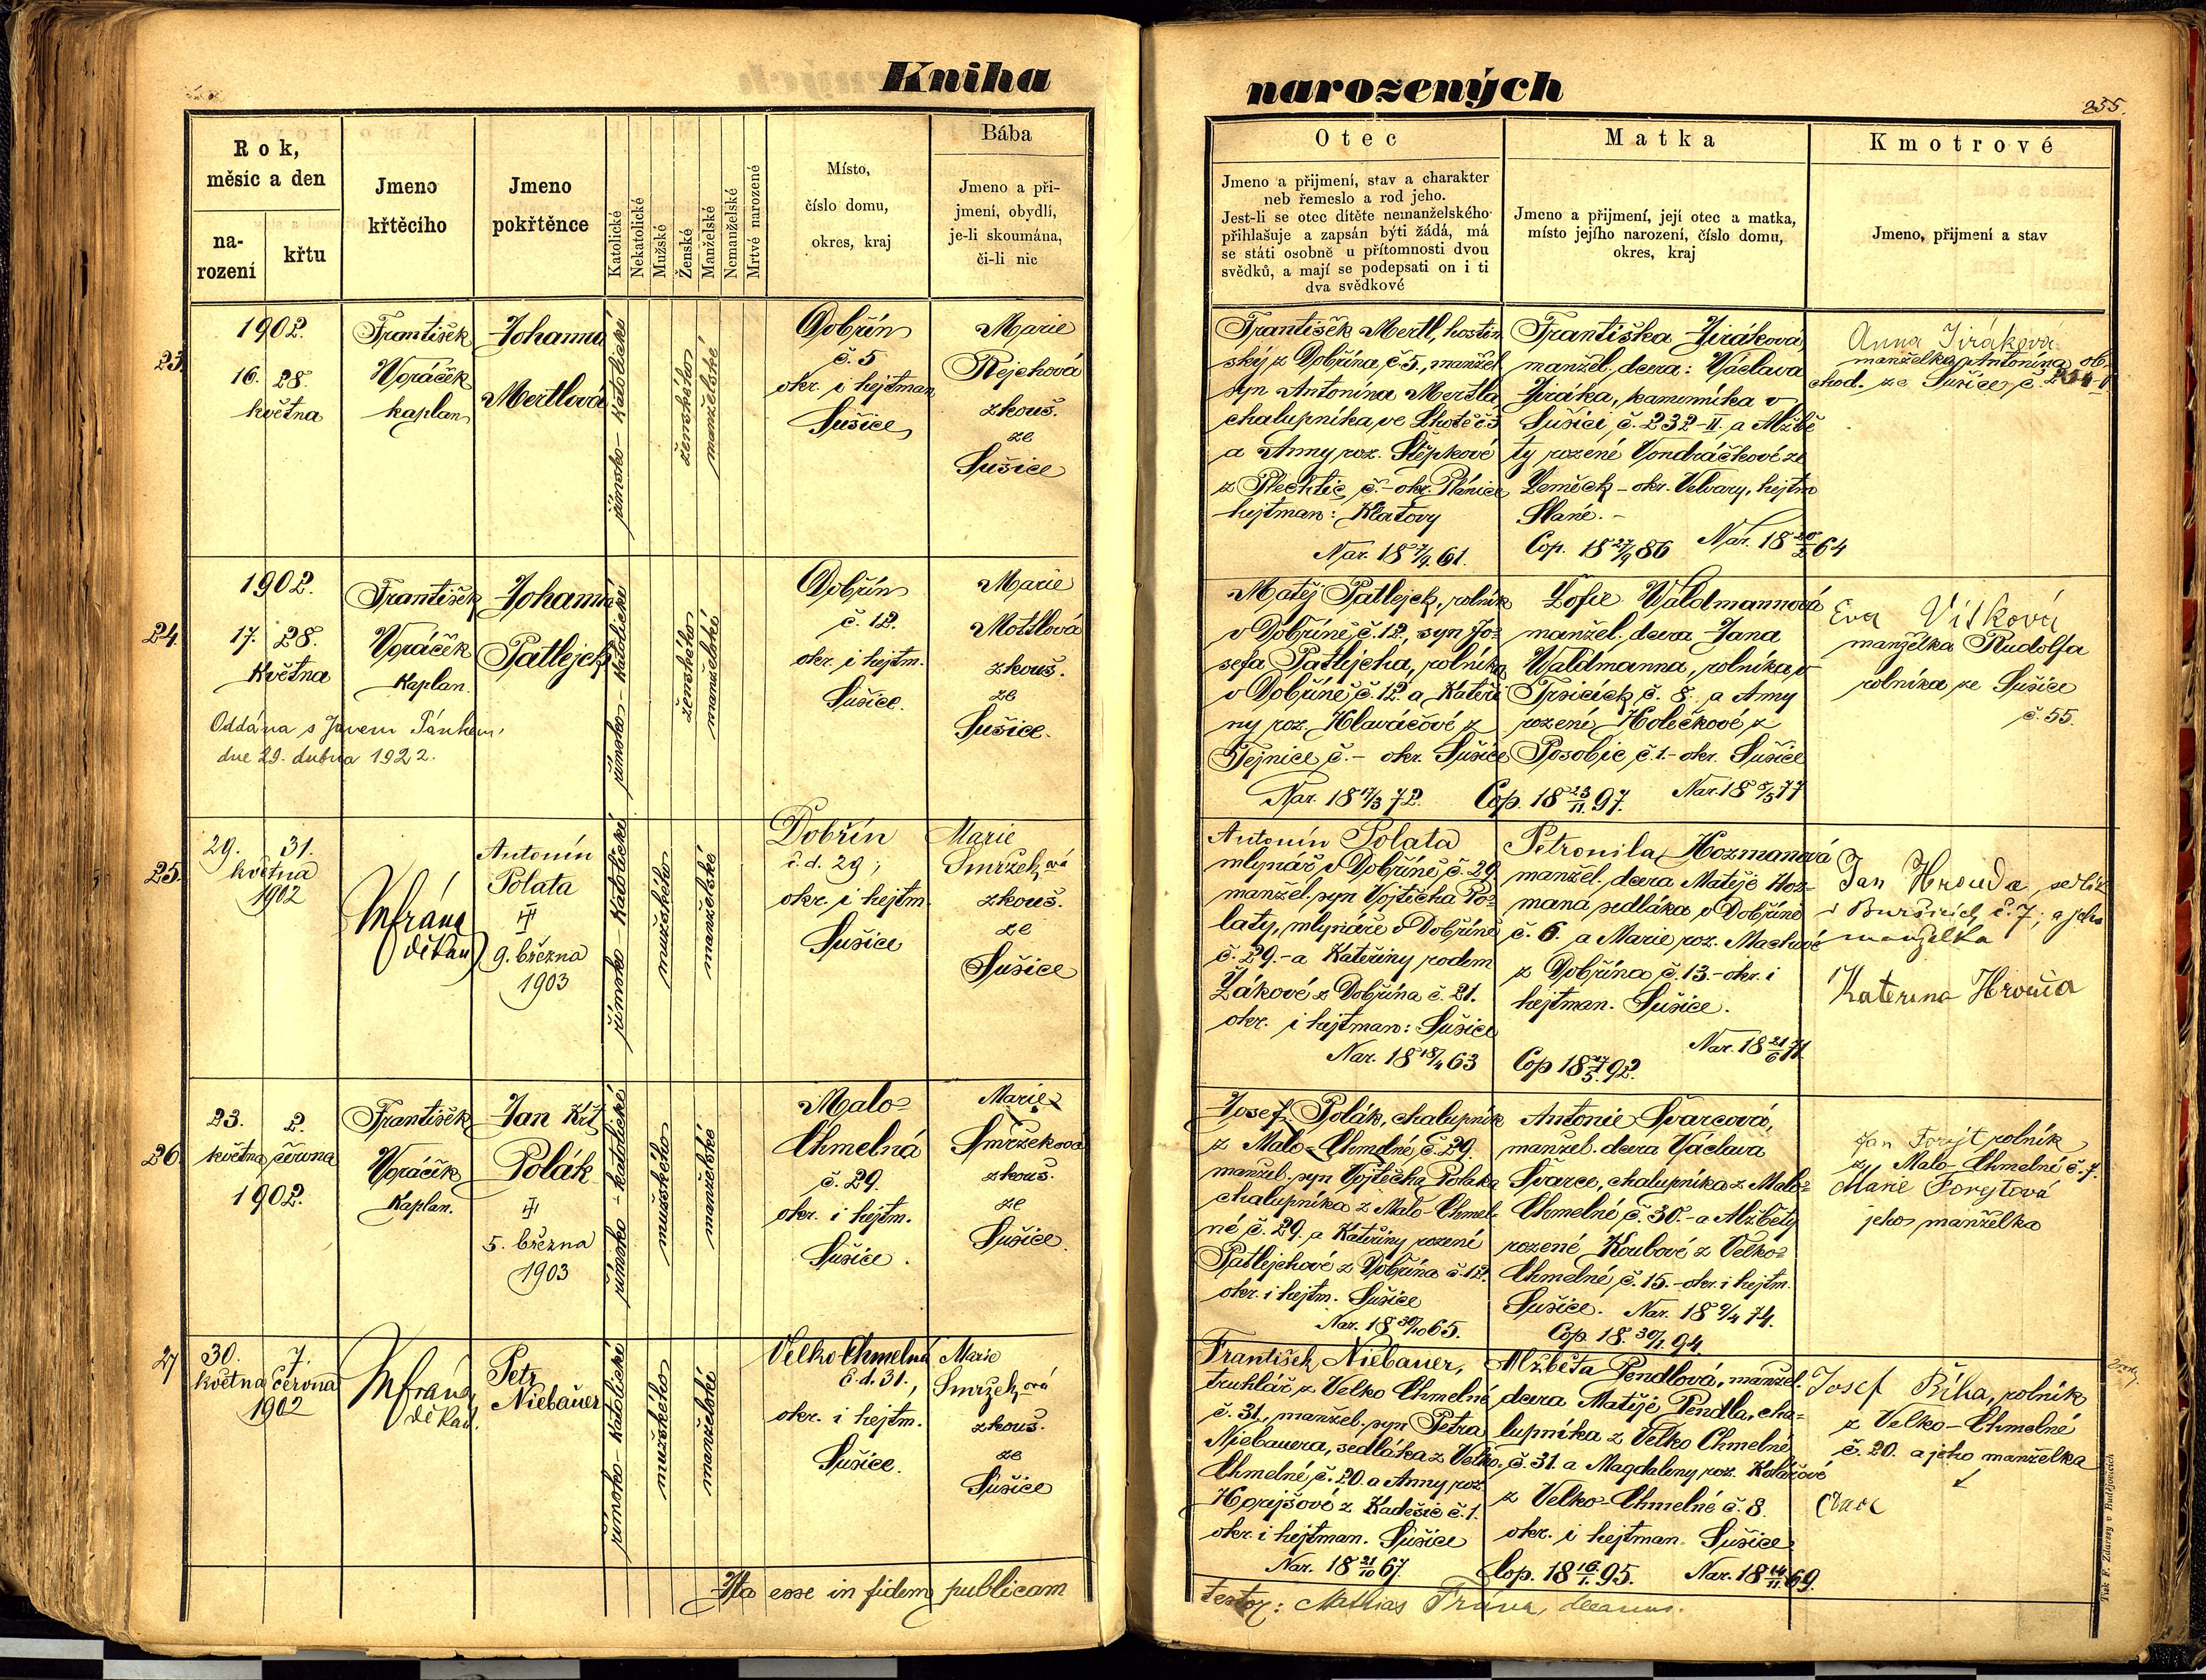 Kniha
narozených
235.
Rok,
měsíc a den
na-
rození
křtu
Jmeno
křtěcího
Jmeno
pokřtěnce
Katolické
Nekatolické
Mužské
Ženské
Manželské
Nemanželské
Mrtvé narozené
Místo,
číslo domu,
okres, kraj
Bába
Jmeno a pří-
jmení, obydlí,
je-li skoumána,
či-li nic
Otec
Jmeno a přijmení, stav a charakter
neb řemeslo a rod jeho.
Jest-li se otec dítěte nemanželského
přihlašuje a zapsán býti žádá, má
se státi osobně u přítomnosti dvou
svědků, a mají se podepsati on i ti
dva svědkové
Matka
Jmeno a přijmení, její otec a matka,
místo jejího narození, číslo domu,
okres, kraj
Kmotrové
Jmeno, přijmení a stav
23.
1902.
16. 28.
května
František
Voráček
kaplan
Johanna
Mertlová
římsko-katolické
ženského
manželské
Dobřín
č. 5
okr. i hejtman
Sušice
Marie
Rejchová
zkouš.
ze
Sušice
František Mertl, hostin
ský z Dobřína, č. 5., manžel.
syn Antonína Mertla
chalupníka, ve Lhotě č. 3
a Anny roz. Štěpkové
z Plechtic č. - okr. Plánice
hejtman: Klatovy
Nar. 18 7/9. 61.
Františka Jiráková,
manžel. dcera: Václava
Jiráka, kameníka v
Sušici, č. 232-II. a Alžbě
ty rozené Vondráčkové ze
Zeměch - okr. Velvary, hejtm
Slané. -
Cop. 18 27/9 86 Nar. 18 20/2 64
Anna Jiráková
manželka Antonína ob-
chod. ze Sušice, č.
24.
1902.
17. 28.
Května
František
Voráček
Kaplan.
Johanna
Patlejch
Oddána s Janem Pánkem,
dne 29. dubna 1922.
římsko-katolické
ženského
manželské
Dobřín
č. 12.
okr. i hejtm.
Sušice.
Marie
Mottlová
zkouš.
ze
Sušice.
Matěj Patlejch, rolník
v Dobříně č. 12., syn Jo-
sefa Patlejcha, rolníka
v Dobříně č. 12. a Kateři
ny roz. Hlaváčové z
Tejnice č. - okr. Sušice
Nar. 18 17/3 72.
Žofie Waldmannová
manžel. dcera Jana
Waldmanna, rolníka v
Trsicích č. 8. a Anny
rozené Holečkové z
Posobic č. 1. - okr. Sušice
Cop. 18 23/11 97. Nar. 18 8/5 77
Eva Vítková
manželka Rudolfa
rolníka ze Sušice
č. 55.
25.
29. 31.
května
1902
Mfrána
děkan
Antonín
Polata
III
9. března
1903
římsko-katolické
mužského
manželské
Dobřín
č. d. 29;
okr. i hejtm.
Sušice
Marie
Smržková
zkouš.
ze
Sušice
Antonín Polata
mlynář v Dobříně č. 29
manžel. syn Vojtěcha Po-
laty, mlynáře v Dobříně
č. 29. - a Kateřiny rodem
Žákové z Dobřína č. 21.
okr. i hejtman: Sušice
Nar. 18 18/4 63
Petronila Hozmanová
manžel. dcera Matěje Hoz-
mana sedláka v Dobříně
č. 6. a Marie roz. Machové
z Dobřína č. 13. - okr. i
hejtman. Sušice.
Nar. 18 21/6 71.
Cop 18 17/5. 92.
Jan Hrouda, sedlák
v Buršicích č. 7, a jeho
manželka
Kateřina Hrouda
26.
23. 2.
května června
1902.
František
Voráček
Kaplan.
Jan Křt.
Polák
III
5. března
1903
římsko-katolické
mužského
manželské
Malo-
Chmelná
č. 29.
okr. i hejtm.
Sušice.
Marie
Smržková
zkouš.
ze
Sušice.
Josef Polák, chalupník
z Malo-Chmelné, č. 29.
manžel. syn Vojtěcha Poláka
chalupníka z Malo-Chmel-
né č. 29. a Kateřiny rozené
Patlejchové z Dobřína č. 12.
okr. i hejtm. Sušice
Nar. 18 30/10 65.
Antonie Švarcová,
manžel. dcera Václava
Švarce, chalupníka z Malo-
Chmelné č. 30. - a Alžběty
rozené Koubové z Velko-
Chmelné, č. 15. - okr. i hejtm.
Sušice. Nar. 18 9/4 74.
Cop. 18. 30/1. 94.
Jan Forejt rolník
z Malo-Chmelné č. 7.
Marie Forejtová
jeho manželka
27
30. 7.
května června
1902
Mfrána
děkan.
Petr
Niebauer
římsko-katolické
mužského
manželské
Velko Chmelná
č. d. 31.,
okr. i hejtm.
Sušice.
Marie
Smržková
zkouš.
ze
Sušice
František Niebauer,
truhlář z Velko Chmelné
č. 31., manžel. syn Petra
Niebauera, sedláka z Velko-
Chmelné, č. 20. a Anny roz.
Horejšové z Kadešic č. 1.
okr. i hejtman. Sušice
Nar. 18 21/10 67
Alžběta Pendlová, manžel.
dcera Matěje Pendla, cha-
lupníka z Velko Chmelné
č. 31. a Magdaleny roz. Kolářové
z Velko-Chmelné č. 8.
okr. i hejtman. Sušice
Cop. 18 16/1. 95. Nar. 18 14/11. 69.
Josef Říha, rolník
z Velko-Chmelné
č. 20. a jeho manželka
Ita esse in fidem publicam
testor: Mathias Frána, decanus.
Tisk F. Zdarssy v Budějovicích